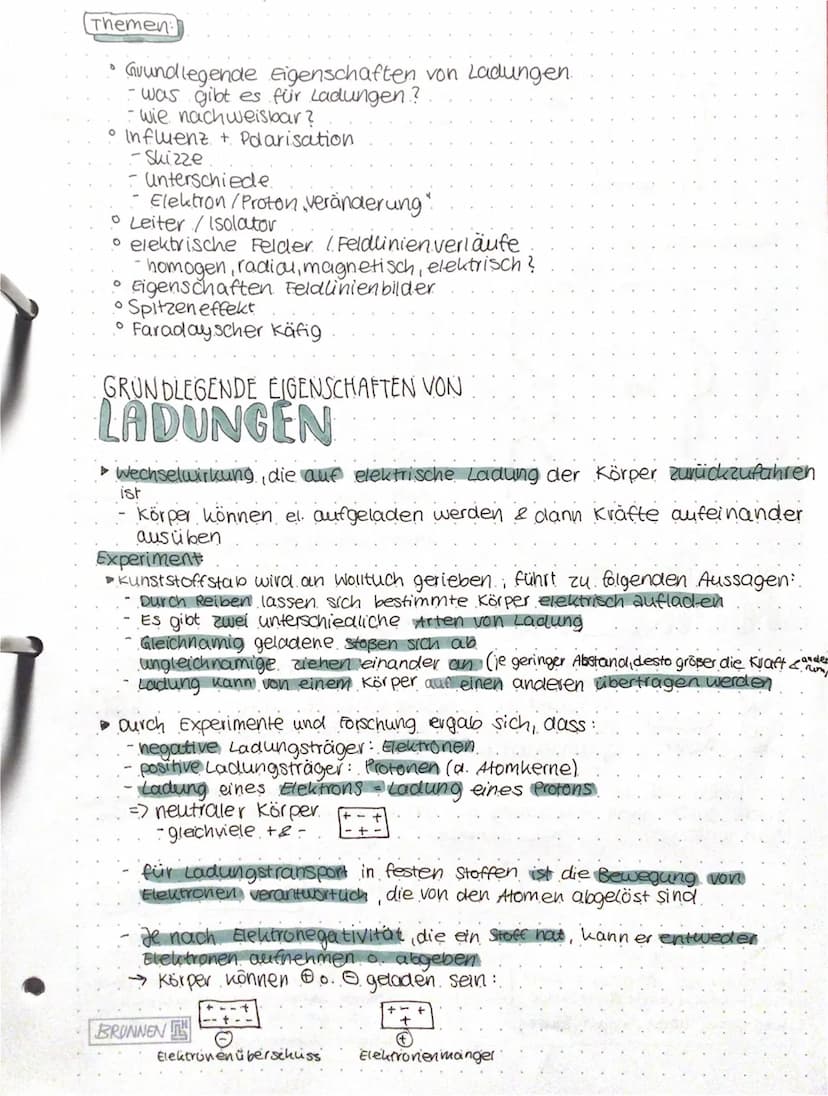 Themen:
° Grundlegende Eigenschaften von Ladungen
- was gibt es für Ladungen?
- wie nachweisbar?
° Influenz + Polarisation
- Skizze
- Unterschiede
- Elektron/Proton „veränderung"
° Leiter / Isolator
° elektrische Felder / Feldlinienverläufe
- homogen, radial, magnetisch, elektrisch?
° Eigenschaften Feldlinienbilder
° Spitzeneffekt
° Faradayscher Käfig
GRUNDLEGENDE EIGENSCHAFTEN VON
LADUNGEN
▸ Wechselwirkung, die auf elektrische Ladung der Körper zurückzuführen
ist
- Körper können el. aufgeladen werden & dann Kräfte aufeinander
ausüben
Experiment
▸ Kunststoffstab wird an Wolltuch gerieben, führt zu folgenden Aussagen:
- Durch Reiben lassen sich bestimmte Körper elektrisch aufladen
- Es gibt zwei unterschiedliche Arten von Ladung
- Gleichnamig geladene stoßen sich ab
ungleichnamige ziehen einander an (je geringer Abstand, desto größer die Kraft & anders rum)
- Ladung kann von einem Körper auf einen anderen übertragen werden
▸ Durch Experimente und Forschung ergab sich, dass:
- negative Ladungsträger: Elektronen
- positive Ladungsträger: Protonen (d. Atomkerne)
- Ladung eines Elektrons = Ladung eines Protons
=> neutraler Körper
+ - +
- gleichviele + & -
- + -
- für Ladungstransport in festen Stoffen ist die Bewegung von
Elektronen verantwortlich, die von den Atomen abgelöst sind
- Je nach Elektronegativität, die ein Stoff hat, kann er entweder
Elektronen aufnehmen o. abgeben
→ Körper können ⊕ o. ⊖ geladen sein:
+ - - + + - +
- - + - - +
BRUNNEN
⊖ ⊕
Elektronenüberschuss Elektronenmangel